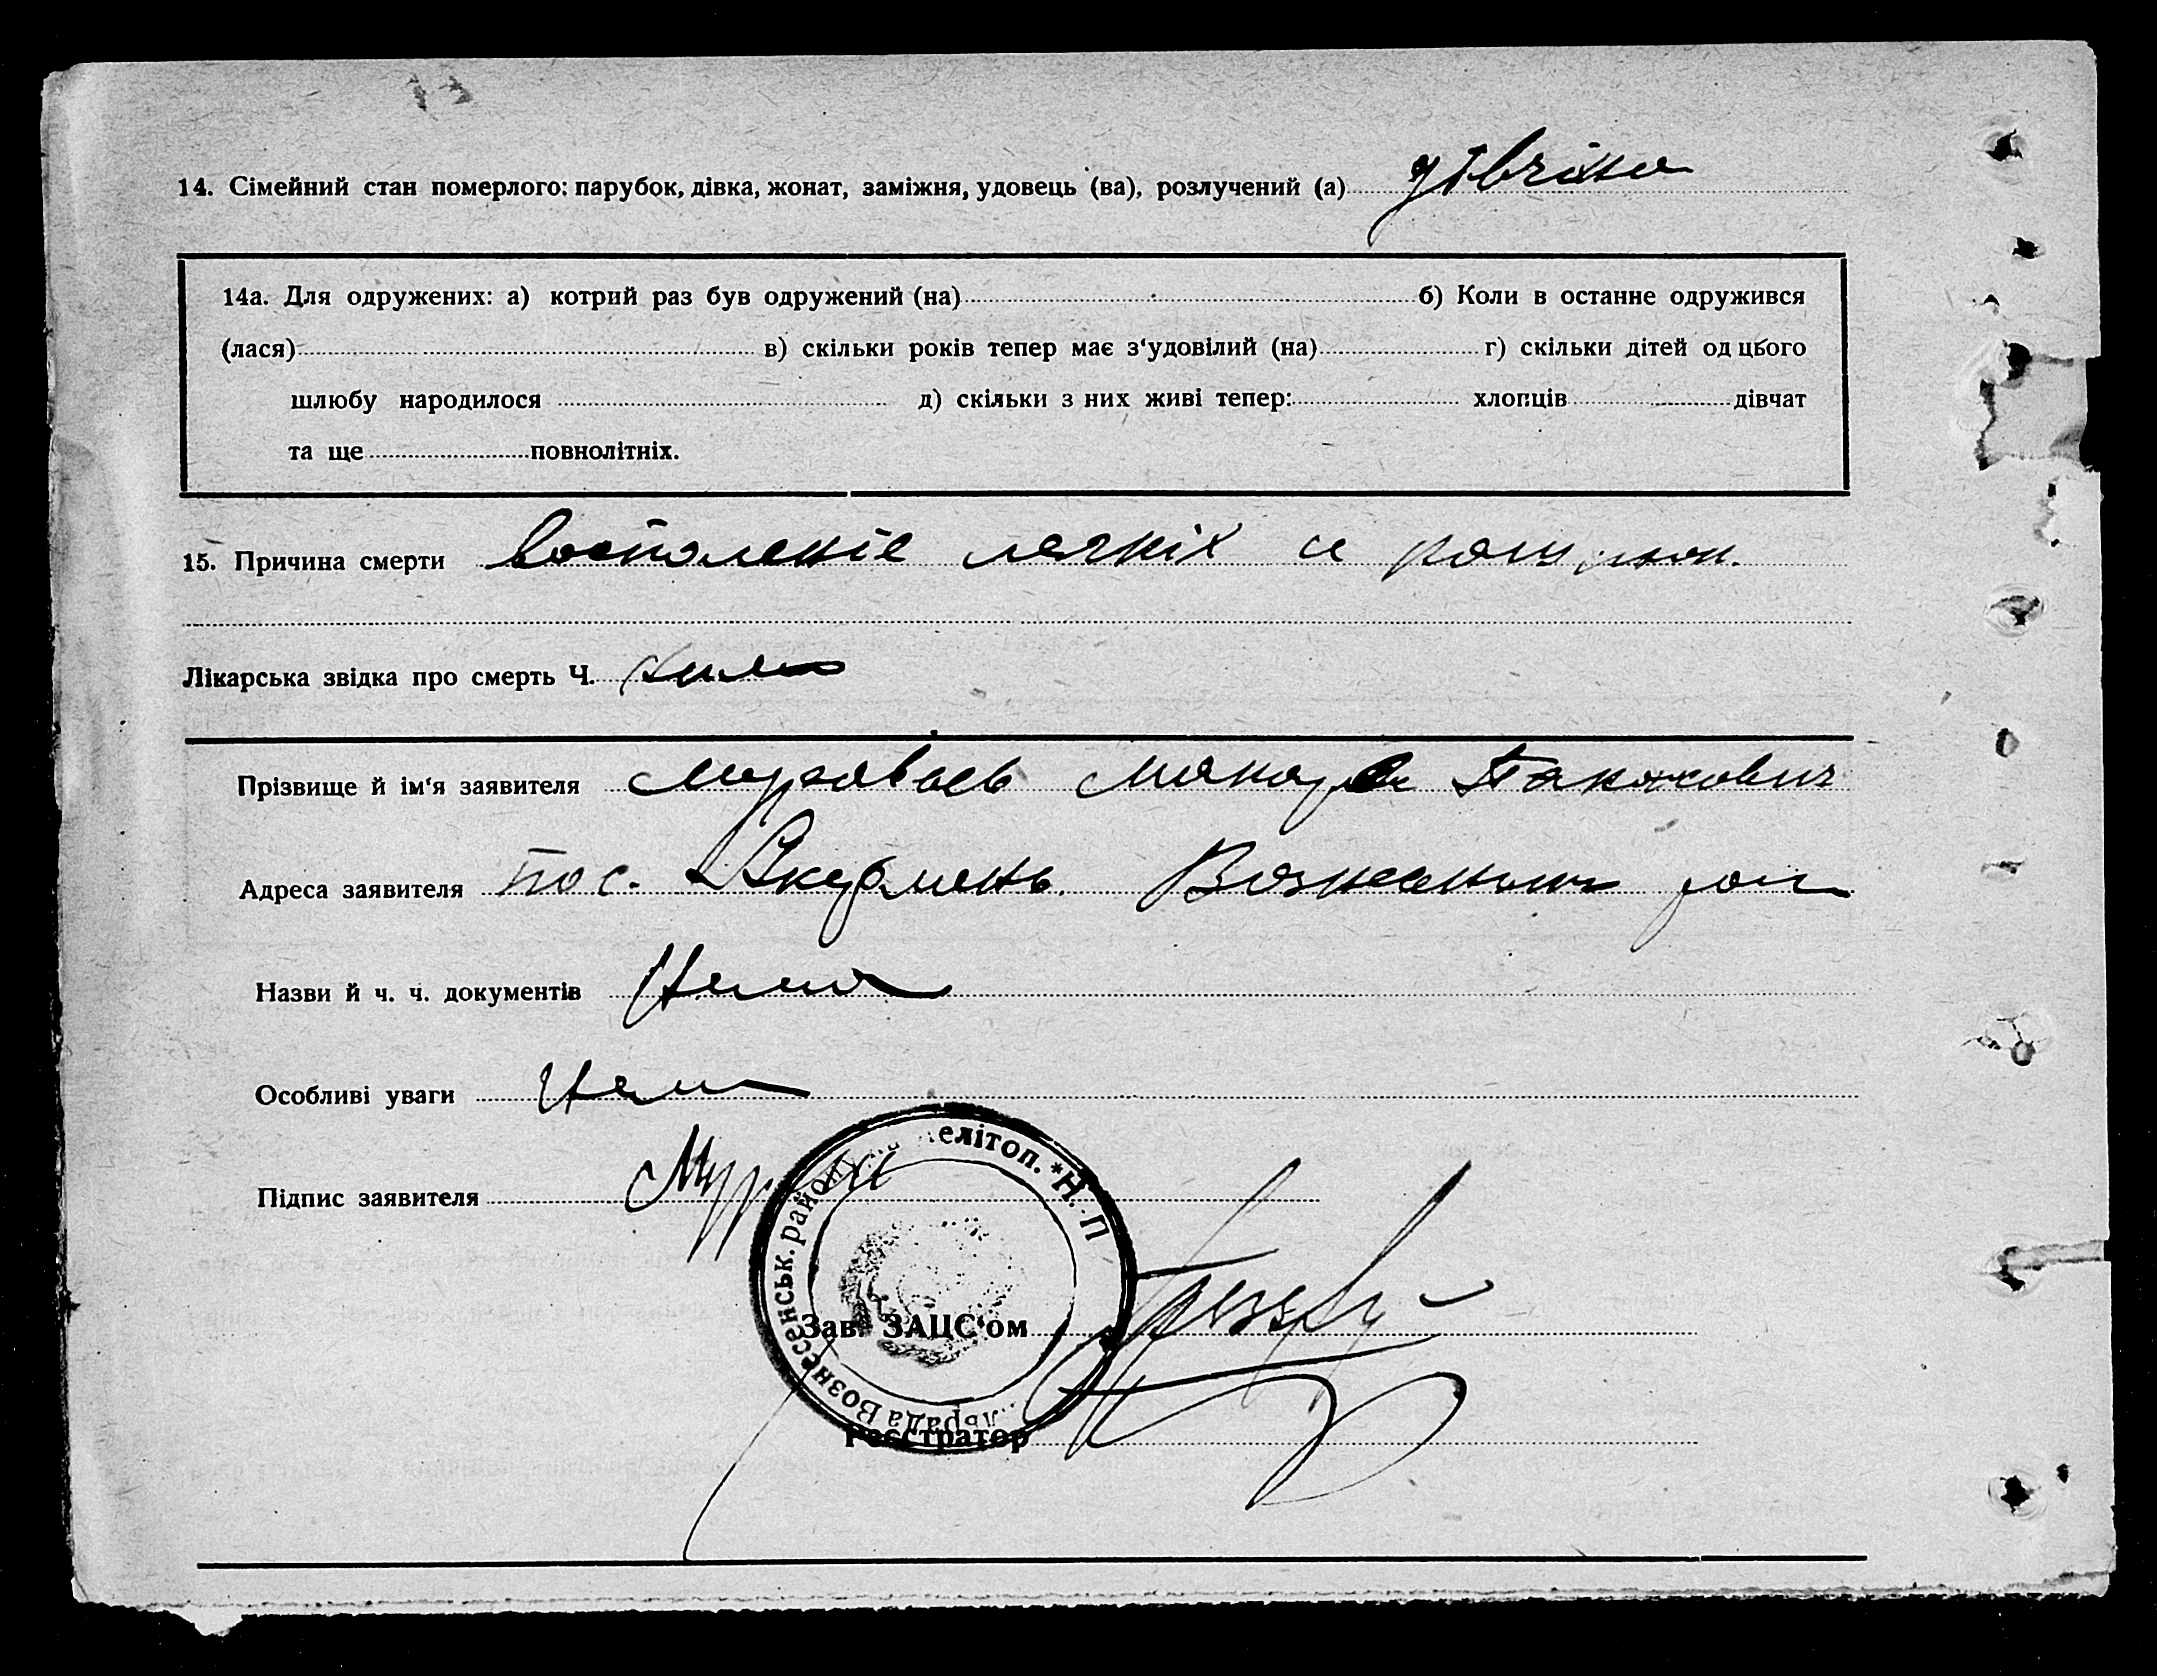 14. Сімейний стан померлого: парубок, дівка, жонат, заміжня, удовець (ва), розлучений (а) дівчина
14а. Для одружених: а) котрий раз був одружений (на) б) Коли в останне одружився
(лася) в) скільки років тепер має з'удовілий (на) г) скільки дітей од цього
шлюбу народилося д) скільки з них живі тепер: хлопців дівчат
та ще повнолітніх.
15. Причина смерти воспаленіе легкіх и
Лікарська звідка про смерть Ч. нема
Прізвище й ім'я заявителя Макар
Адреса заявителя пос. Акермень
Назви й ч. ч. документів Нема
Особливі уваги Нема
Підпис заявителя
ельрада Вознесенськ. району елітоп. * Н. П
Зав. ЗАЦС'ом
Реєстратор